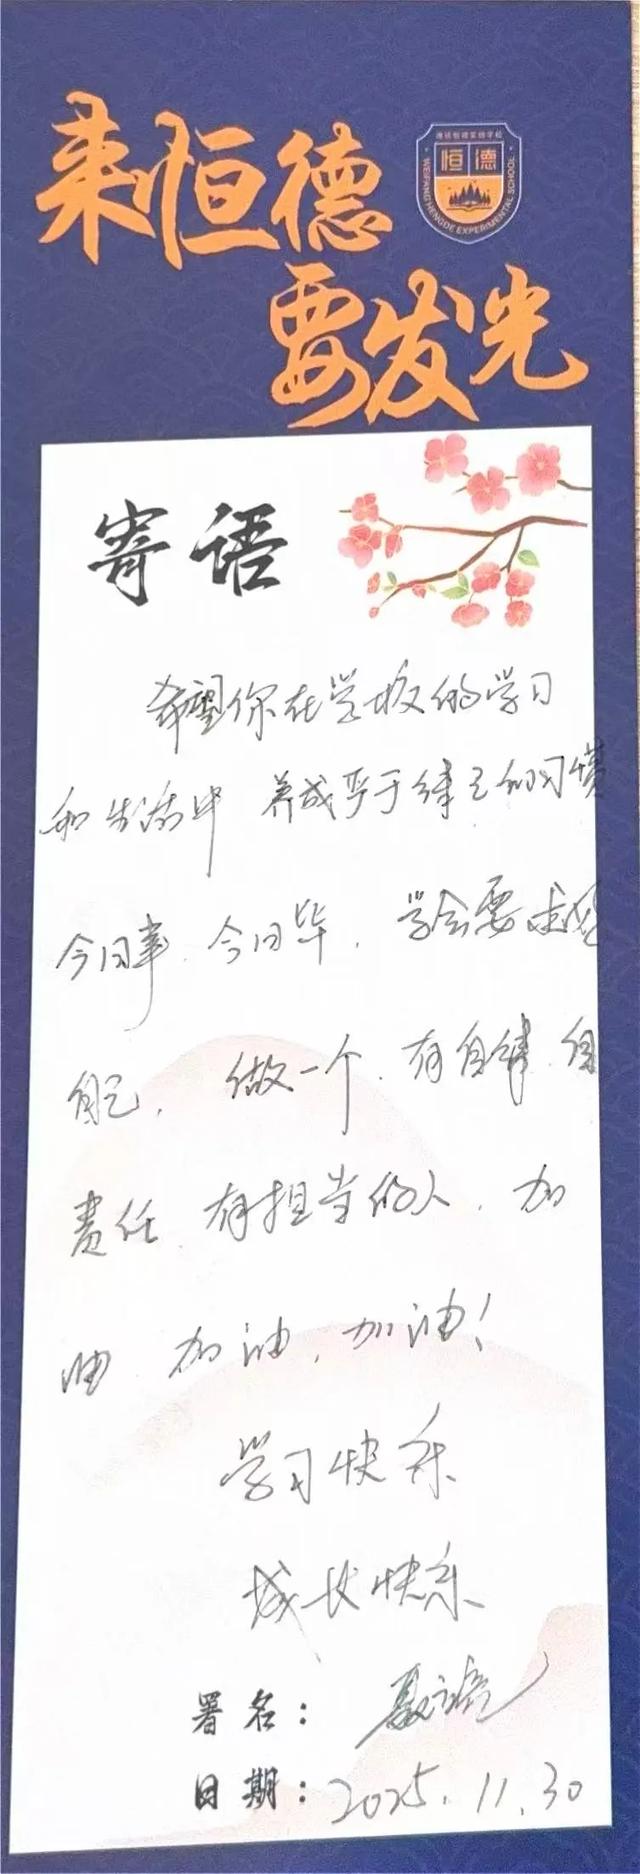 来恒德
恒德
WEIFANG HENGDE EXPERIMENTAL SCHOOL
要发光
寄语
希望你在学校的学习
和生活中 养成严于律己的习惯
今日事.今日毕. 学会要求
自己, 做一个.有自律.有
责任.有担当的人. 加
油 加油,加油!
学习快乐
成长快乐
署名:
日期:2025.11.30